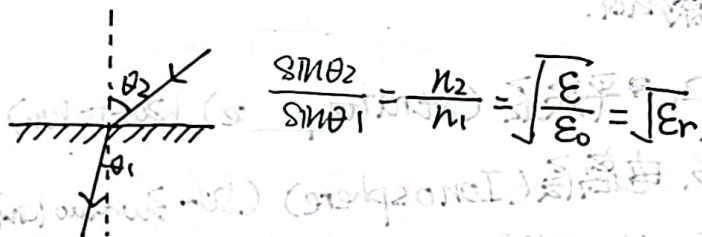 θ2
θ1
sinθ2/sinθ1 = n2/n1 = √(ε/ε0) = √εr